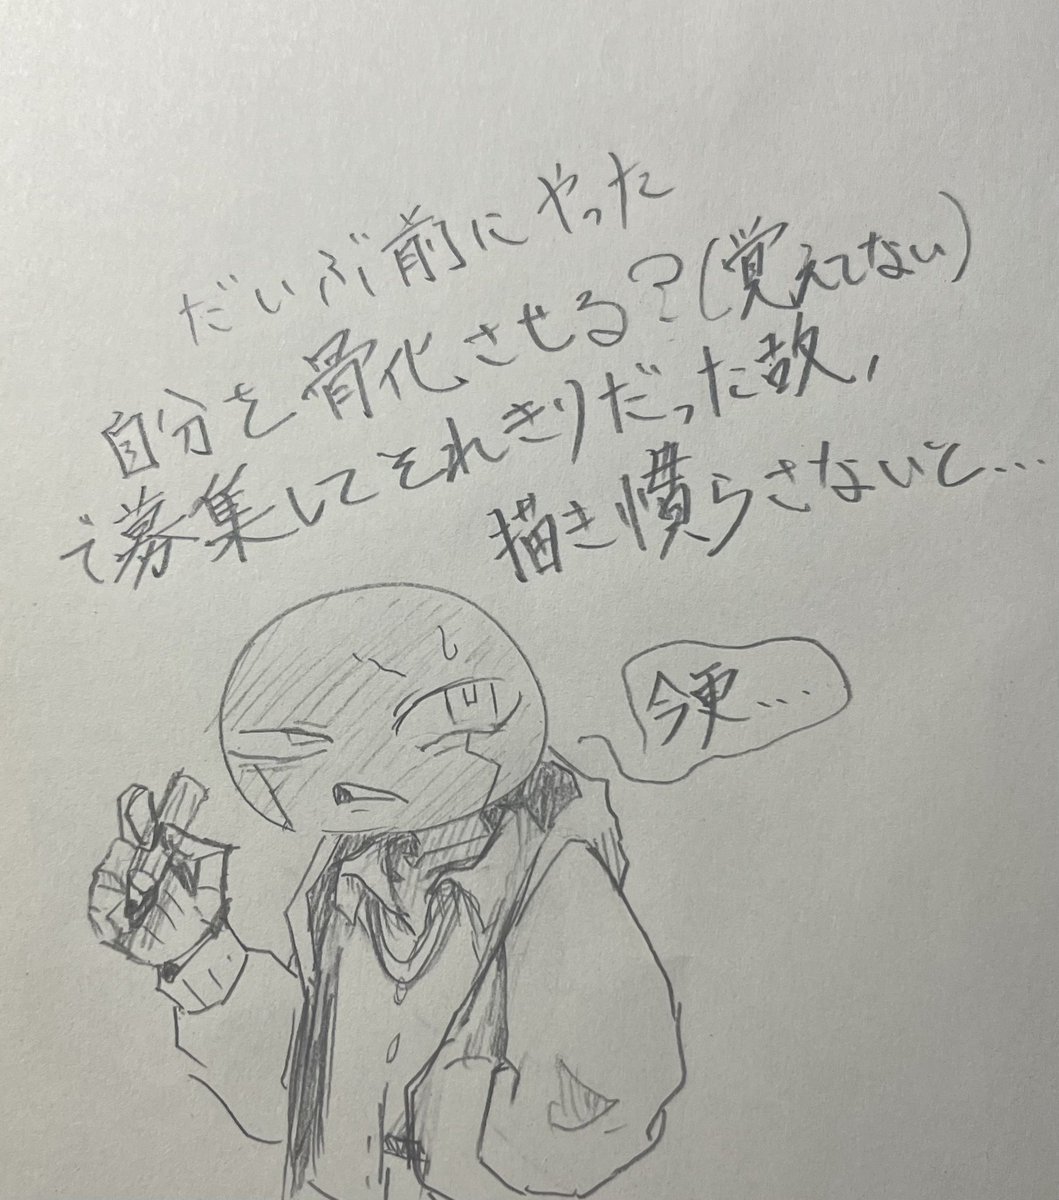 だいぶ前にやった
自分を骨化させる?(覚えてない)
で募集してそれきりだった故,
描き慣らさないと...
今更...